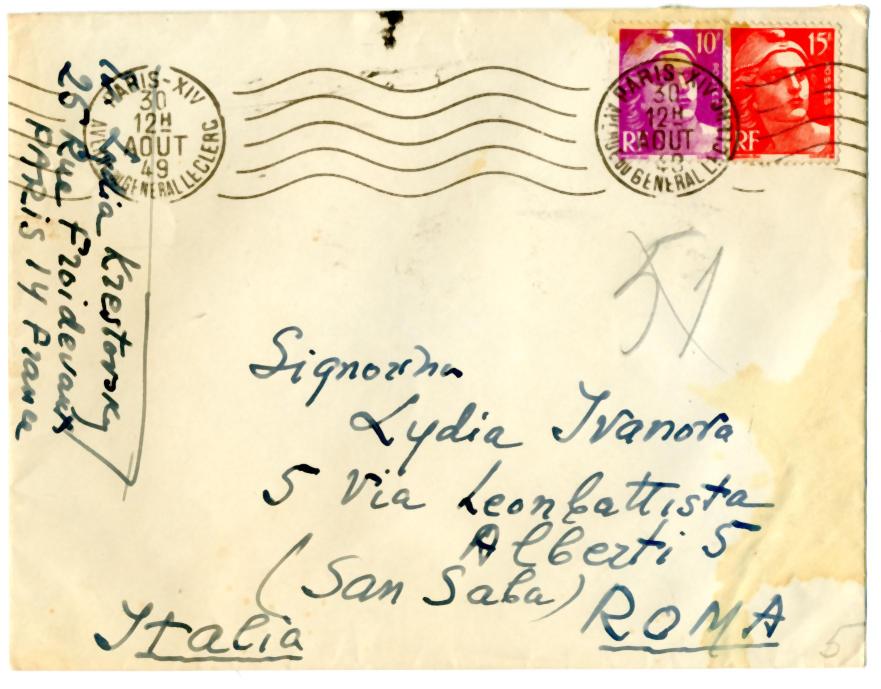 PARIS-XIV
30
12H
AOUT
49
AVENUE DU GENERAL LECLERC
PARIS XIV
30
12H
AOUT
49
DU GENERAL LECLERC
10F
RF
15F
POSTES
RF
Lydia Krestovsky
25 Rue Froidevaux
PARIS 14 France
51
Signorina
Lydia Ivanova
5 Via Leonbattista
Alberti 5
(San Saba)
ROMA
Italia
5